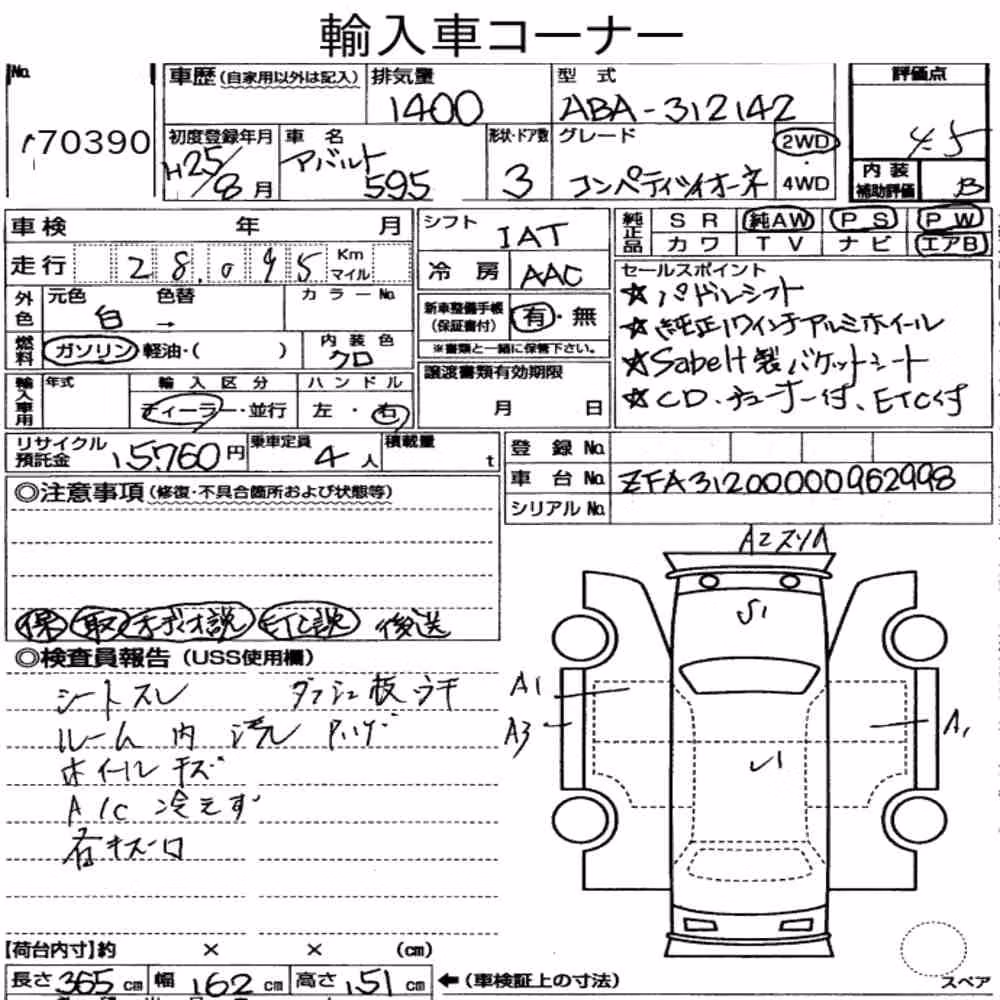 輸入車コーナー
No.
70390
車歴(自家用以外は記入)
排気量
1400
型式
ABA-312142
評価点
4.5
初度登録年月
H25/8月
車名
アバルト
595
形状・ドア数
3
グレード
コンペティツィオーネ
2WD
・
4WD
内装
補助評価
B
車検 年 月
走行 28,095 Km マイル
外色
元色 色替
白 →
カラーNo.
燃料
ガソリン・軽油・( )
内装色
クロ
輸入車用
年式
輸入区分
ディーラー・並行
ハンドル
左・右
リサイクル
預託金
15760円
乗車定員
4人
積載量
t
シフト
IAT
冷房
AAC
新車整備手帳
(保証書付)
有・無
※書類と一緒に保管下さい。
譲渡書類有効期限
月 日
純正品
SR 純AW PS PW
カワ TV ナビ エアB
セールスポイント
☆パドルシフト
☆純正17インチアルミホイール
☆Sabelt製バケットシート
☆CD.チューナー付、ETC付
登録No.
車台No. ZFA31200000962998
シリアルNo.
◎注意事項(修復・不具合箇所および状態等)
保 取 ナビ才説 ETC説 後送
◎検査員報告(USS使用欄)
シートスレ ダッシュ板ウキ
ルーム内 汚れ ハゲ
ホイールキズ
A/C 冷えず
各キズ凹
A2 スリ
S1
A1
A3
A1
【荷台内寸】約 × × (cm)
長さ365cm 幅162cm 高さ151cm
←(車検証上の寸法)
スペア